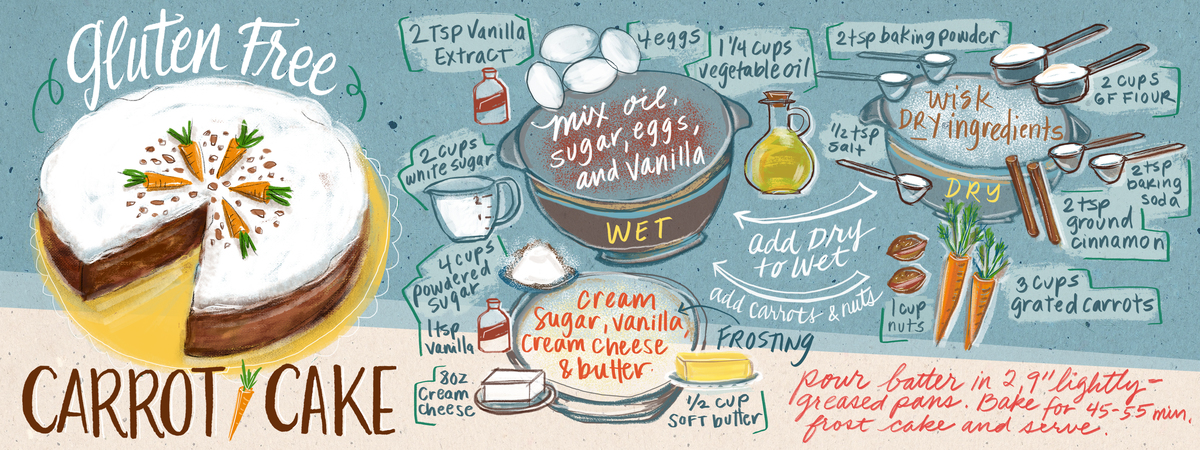 Gluten Free
CARROT CAKE
2 Tsp Vanilla
Extract
4 eggs
1 1/4 cups
vegetable oil
mix oil,
sugar, eggs,
and Vanilla
WET
2 cups
white sugar
1
2
4 cups
powdered
sugar
1 tsp
vanilla
8oz
Cream
cheese
Cream
Sugar, vanilla,
Cream cheese
& butter
FROSTING
1/2 cup
SOFT butter
2 tsp baking powder
2 cups
GF Flour
wisk
DRY ingredients
DRY
1/2 tsp
Salt
2 tsp
baking
soda
2 tsp
ground
cinnamon
add Dry
to Wet
add carrots & nuts
1 cup
nuts
3 cups
grated carrots
pour batter in 2, 9" lightly-
greased pans. Bake for 45-55 min,
frost cake and serve.